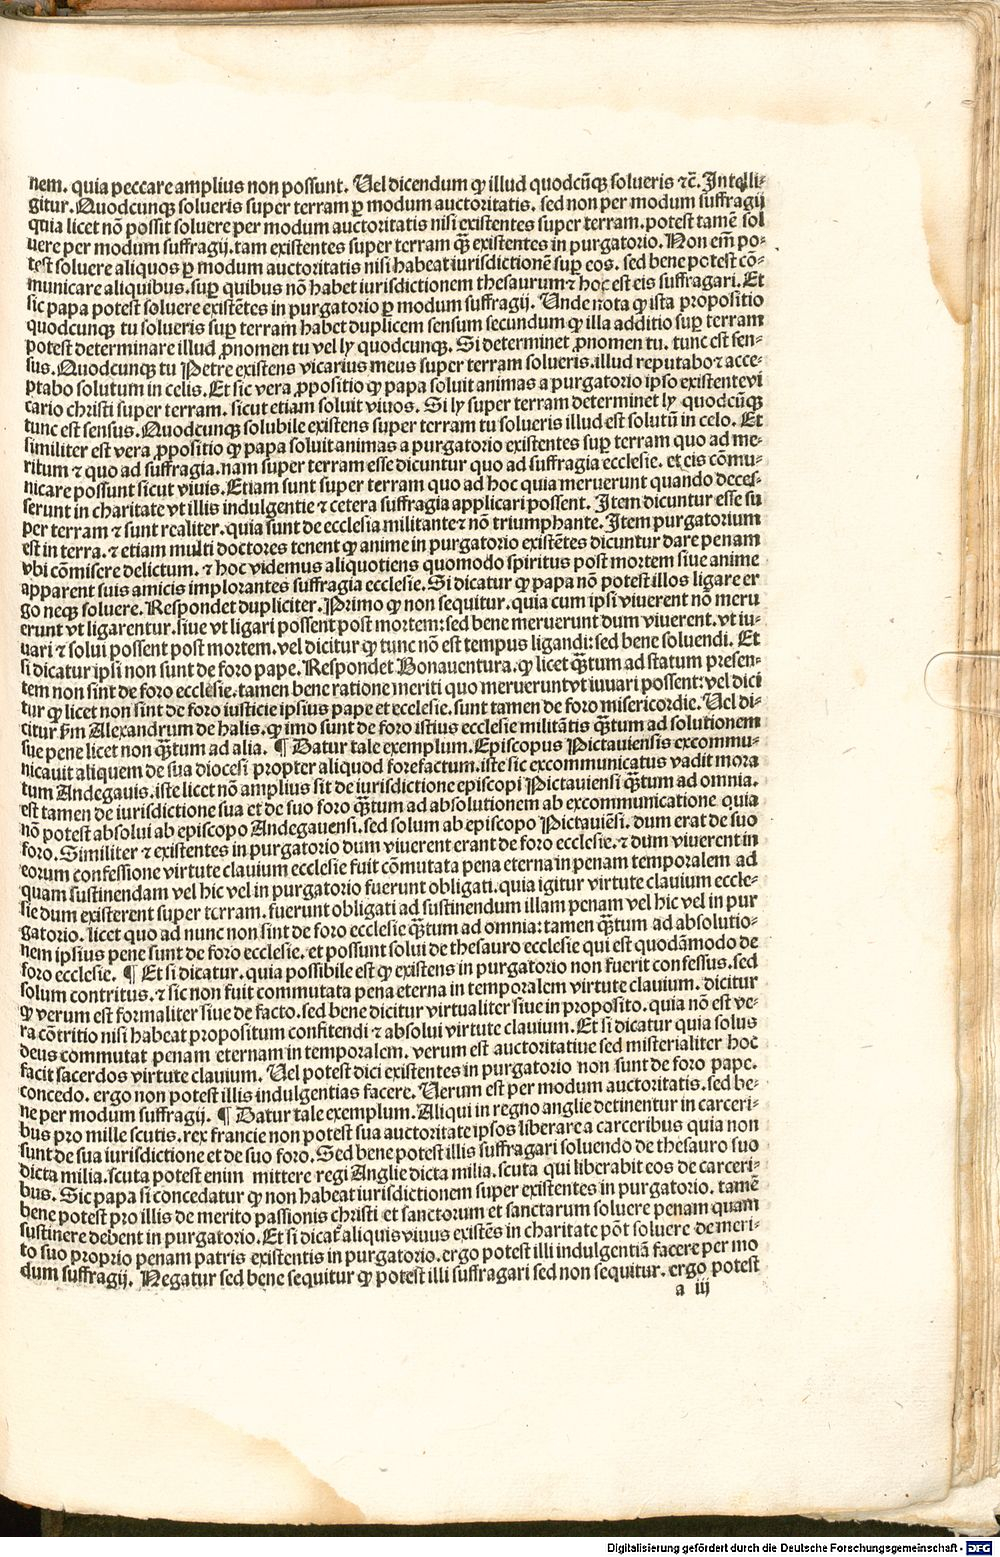 nem. quia peccare amplius non possunt. Uel dicendum ꝙ illud quodcũqꝫ solueris ⁊c̃. Intelli-
gitur. Quodcunqꝫ solueris super terram ꝑ modum auctoritatis. sed non per modum suffragij
quia licet nõ possit soluere per modum auctoritatis nisi existentes super terram. potest tamẽ sol
uere per modum suffragij. tam existentes super terram qꝫ̃ existentes in purgatorio. Non em̃ po-
test soluere aliquos ꝑ modum auctoritatis nisi habeat iurisdictionẽ suꝑ eos. sed bene potest cõ-
municare aliquibus. suꝑ quibus nõ habet iurisdictionem thesaurum ⁊ hoc est eis suffragari. Et
sic papa potest soluere existẽtes in purgatorio ꝑ modum suffragij. Unde nota ꝙ ista propositio
quodcunqꝫ tu solueris suꝑ terram habet duplicem sensum secundum ꝙ illa additio suꝑ terram
potest determinare illud ꝓnomen tu vel ly quodcunqꝫ. Si determinet ꝓnomen tu. tunc est sen-
sus. Quodcunqꝫ tu Petre existens vicarius meus super terram solueris. illud reputabo ⁊ acce-
ptabo solutum in celis. Et sic vera ꝓpositio ꝙ papa soluit animas a purgatorio ipso existente vi
cario christi super terram. sicut etiam soluit viuos. Si ly super terram determinet ly quodcũqꝫ
tunc est sensus. Quodcunqꝫ solubile existens super terram tu solueris illud est solutũ in celo. Et
similiter est vera ꝓpositio ꝙ papa soluit animas a purgatorio existentes suꝑ terram quo ad me-
ritum ⁊ quo ad suffragia. nam super terram esse dicuntur quo ad suffragia ecclesie. et eis cõmu-
nicare possunt sicut viuis. Etiam sunt super terram quo ad hoc quia meruerunt quando deces-
serunt in charitate vt illis indulgentie ⁊ cetera suffragia applicari possent. Item dicuntur esse su
per terram ⁊ sunt realiter. quia sunt de ecclesia militante ⁊ nõ triumphante. Item purgatorium
est in terra. ⁊ etiam multi doctores tenent ꝙ anime in purgatorio existẽtes dicuntur dare penam
vbi cõmisere delictum. ⁊ hoc videmus aliquotiens quomodo spiritus post mortem siue anime
apparent suis amicis implorantes suffragia ecclesie. Si dicatur ꝙ papa nõ potest illos ligare er
go neqꝫ soluere. Respondet dupliciter. Primo ꝙ non sequitur. quia cum ipsi viuerent nõ meru
erunt vt ligarentur. siue vt ligari possent post mortem: sed bene meruerunt dum viuerent. vt iu-
uari ⁊ solui possent post mortem. vel dicitur ꝙ tunc nõ est tempus ligandi: sed bene soluendi. Et
si dicatur ipsi non sunt de foro pape. Respondet Bonauentura. ꝙ licet qꝫ̃tum ad statum presen-
tem non sint de foro ecclesie. tamen bene ratione meriti quo meruerunt vt iuuari possent: vel dici
tur ꝙ licet non sint de foro iusticie ipsius pape et ecclesie. sunt tamen de foro misericordie. Uel di-
citur ẜm Alexandrum de halis. ꝙ imo sunt de foro istius ecclesie militãtis qꝫ̃tum ad solutionem
sue pene licet non qꝫ̃tum ad alia. ¶ Datur tale exemplum. Episcopus Pictauiensis excommu-
nicauit aliquem de sua diocesi propter aliquod forefactum. iste sic excommunicatus vadit mora
tum Andegauis. iste licet nõ amplius sit de iurisdictione episcopi Pictauiensi qꝫ̃tum ad omnia.
est tamen de iurisdictione sua et de suo foro qꝫ̃tum ad absolutionem ab excommunicatione quia
nõ potest absolui ab episcopo Andegauensi. sed solum ab episcopo Pictauiẽsi. dum erat de suo
foro. Similiter ⁊ existentes in purgatorio dum viuerent erant de foro ecclesie. ⁊ dum viuerent in
eorum confessione virtute clauium ecclesie fuit cõmutata pena eterna in penam temporalem ad
quam sustinendam vel hic vel in purgatorio fuerunt obligati. quia igitur virtute clauium eccle-
sie dum existerent super terram. fuerunt obligati ad sustinendum illam penam vel hic vel in pur
gatorio. licet quo ad nunc non sint de foro ecclesie qꝫ̃tum ad omnia: tamen qꝫ̃tum ad absolutio-
nem ipsius pene sunt de foro ecclesie. et possunt solui de thesauro ecclesie qui est quodãmodo de
foro ecclesie. ¶ Et si dicatur. quia possibile est ꝙ existens in purgatorio non fuerit confessus. sed
solum contritus. ⁊ sic non fuit commutata pena eterna in temporalem virtute clauium. dicitur
ꝙ verum est formaliter siue de facto. sed bene dicitur virtualiter siue in proposito. quia nõ est ve-
ra cõtritio nisi habeat propositum confitendi ⁊ absolui virtute clauium. Et si dicatur quia solus
deus commutat penam eternam in temporalem. verum est auctoritatiue sed misterialiter hoc
facit sacerdos virtute clauium. Uel potest dici existentes in purgatorio non sunt de foro pape.
concedo. ergo non potest illis indulgentias facere. Uerum est per modum auctoritatis. sed be-
ne per modum suffragij. ¶ Datur tale exemplum. Aliqui in regno anglie detinentur in carceri-
bus pro mille scutis. rex francie non potest sua auctoritate ipsos liberare a carceribus quia non
sunt de sua iurisdictione et de suo foro. Sed bene potest illis suffragari soluendo de thesauro suo
dicta milia. scuta potest enim mittere regi Anglie dicta milia. scuta qui liberabit eos de carceri-
bus. Sic papa si concedatur ꝙ non habeat iurisdictionem super existentes in purgatorio. tamẽ
bene potest pro illis de merito passionis christi et sanctorum et sanctarum soluere penam quam
sustinere debent in purgatorio. Et si dicat̃ aliquis viuus existẽs in charitate põt soluere de meri-
to suo proprio penam patris existentis in purgatorio. ergo potest illi indulgentiã facere per mo
dum suffragij. Negatur sed bene sequitur ꝙ potest illi suffragari sed non sequitur. ergo potest
a iij
Digitalisierung gefördert durch die Deutsche Forschungsgemeinschaft - DFG